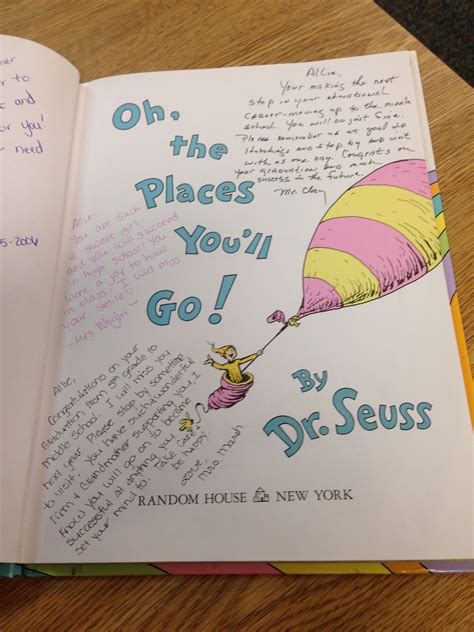 her
r to
e and
or you!
need
5-2004
Allie,
Your making the next
step in your educational
career-moving up to the middle
school. You will do just fine.
Please remember us at good old
and stop by and visit
with us one day. Congrats on
your graduation and much
success in the future.
Mr. Clay
Oh,
the
Places
You'll
Go!
By
Dr. Seuss
Allie-
You are such
a sweet girl
and you will succeed
in high school. You
were a joy to have
in class. I will miss
your smile!
-Mrs Wright
Allie,
Congratulations on your
graduation from grade to
middle school. I will miss you
next year. Please stop by sometime
to visit. You have such wonderful
& Grandmother supporting you, I
know you will go on to become
successful at anything you
set your mind to. Take care
be happy
Love,
Mrs. Marsh
RANDOM HOUSE NEW YORK